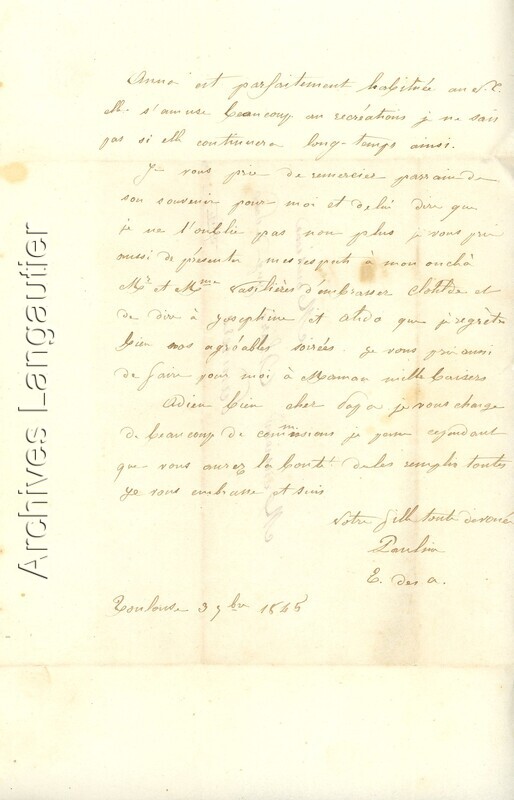 Anna est parfaitement habituée au S. C.
elle s'amuse beaucoup au recréations je ne sais
pas si elle continuera long-temps ainsi.
Je vous prie de remercier parrain de
son souvenir pour moi et de lui dire que
je ne l'oublie pas non plus je vous prie
aussi de présenter mes respects à mon oncle à
Mr et Mme Vasilières d'embrasser Clotilde et
de dire à Joséphine et que je regrète
bien nos agréables soirées. Je vous prie aussi
de faire pour moi à Maman mille baisers
Adieu bien cher Papa je vous charge
de beaucoup de commissions je pense cependant
que vous aurez la bonté de les remplir toutes
Je vous embrasse et suis
Votre fille toute dévouée
Pauline
E. des a.
Toulouse 3 9bre 1845
Archives Langautier